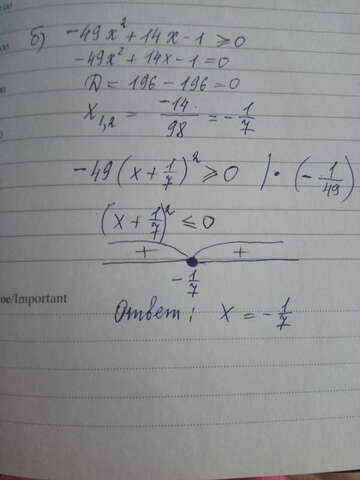 б) -49x² + 14x - 1 ≥ 0
-49x² + 14x - 1 = 0
D = 196 - 196 = 0
x₁,₂ = -14/98 = -1/7
-49(x + 1/7)² ≥ 0 | · (-1/49)
(x + 1/7)² ≤ 0
+ +
-1/7
/Important
Ответ: x = -1/7